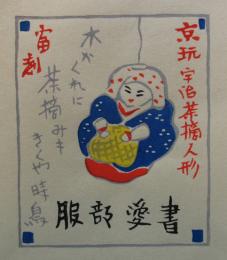 京玩宇治茶摘人形
水がくれに
茶摘みき
きくや時鳥
服部愛書